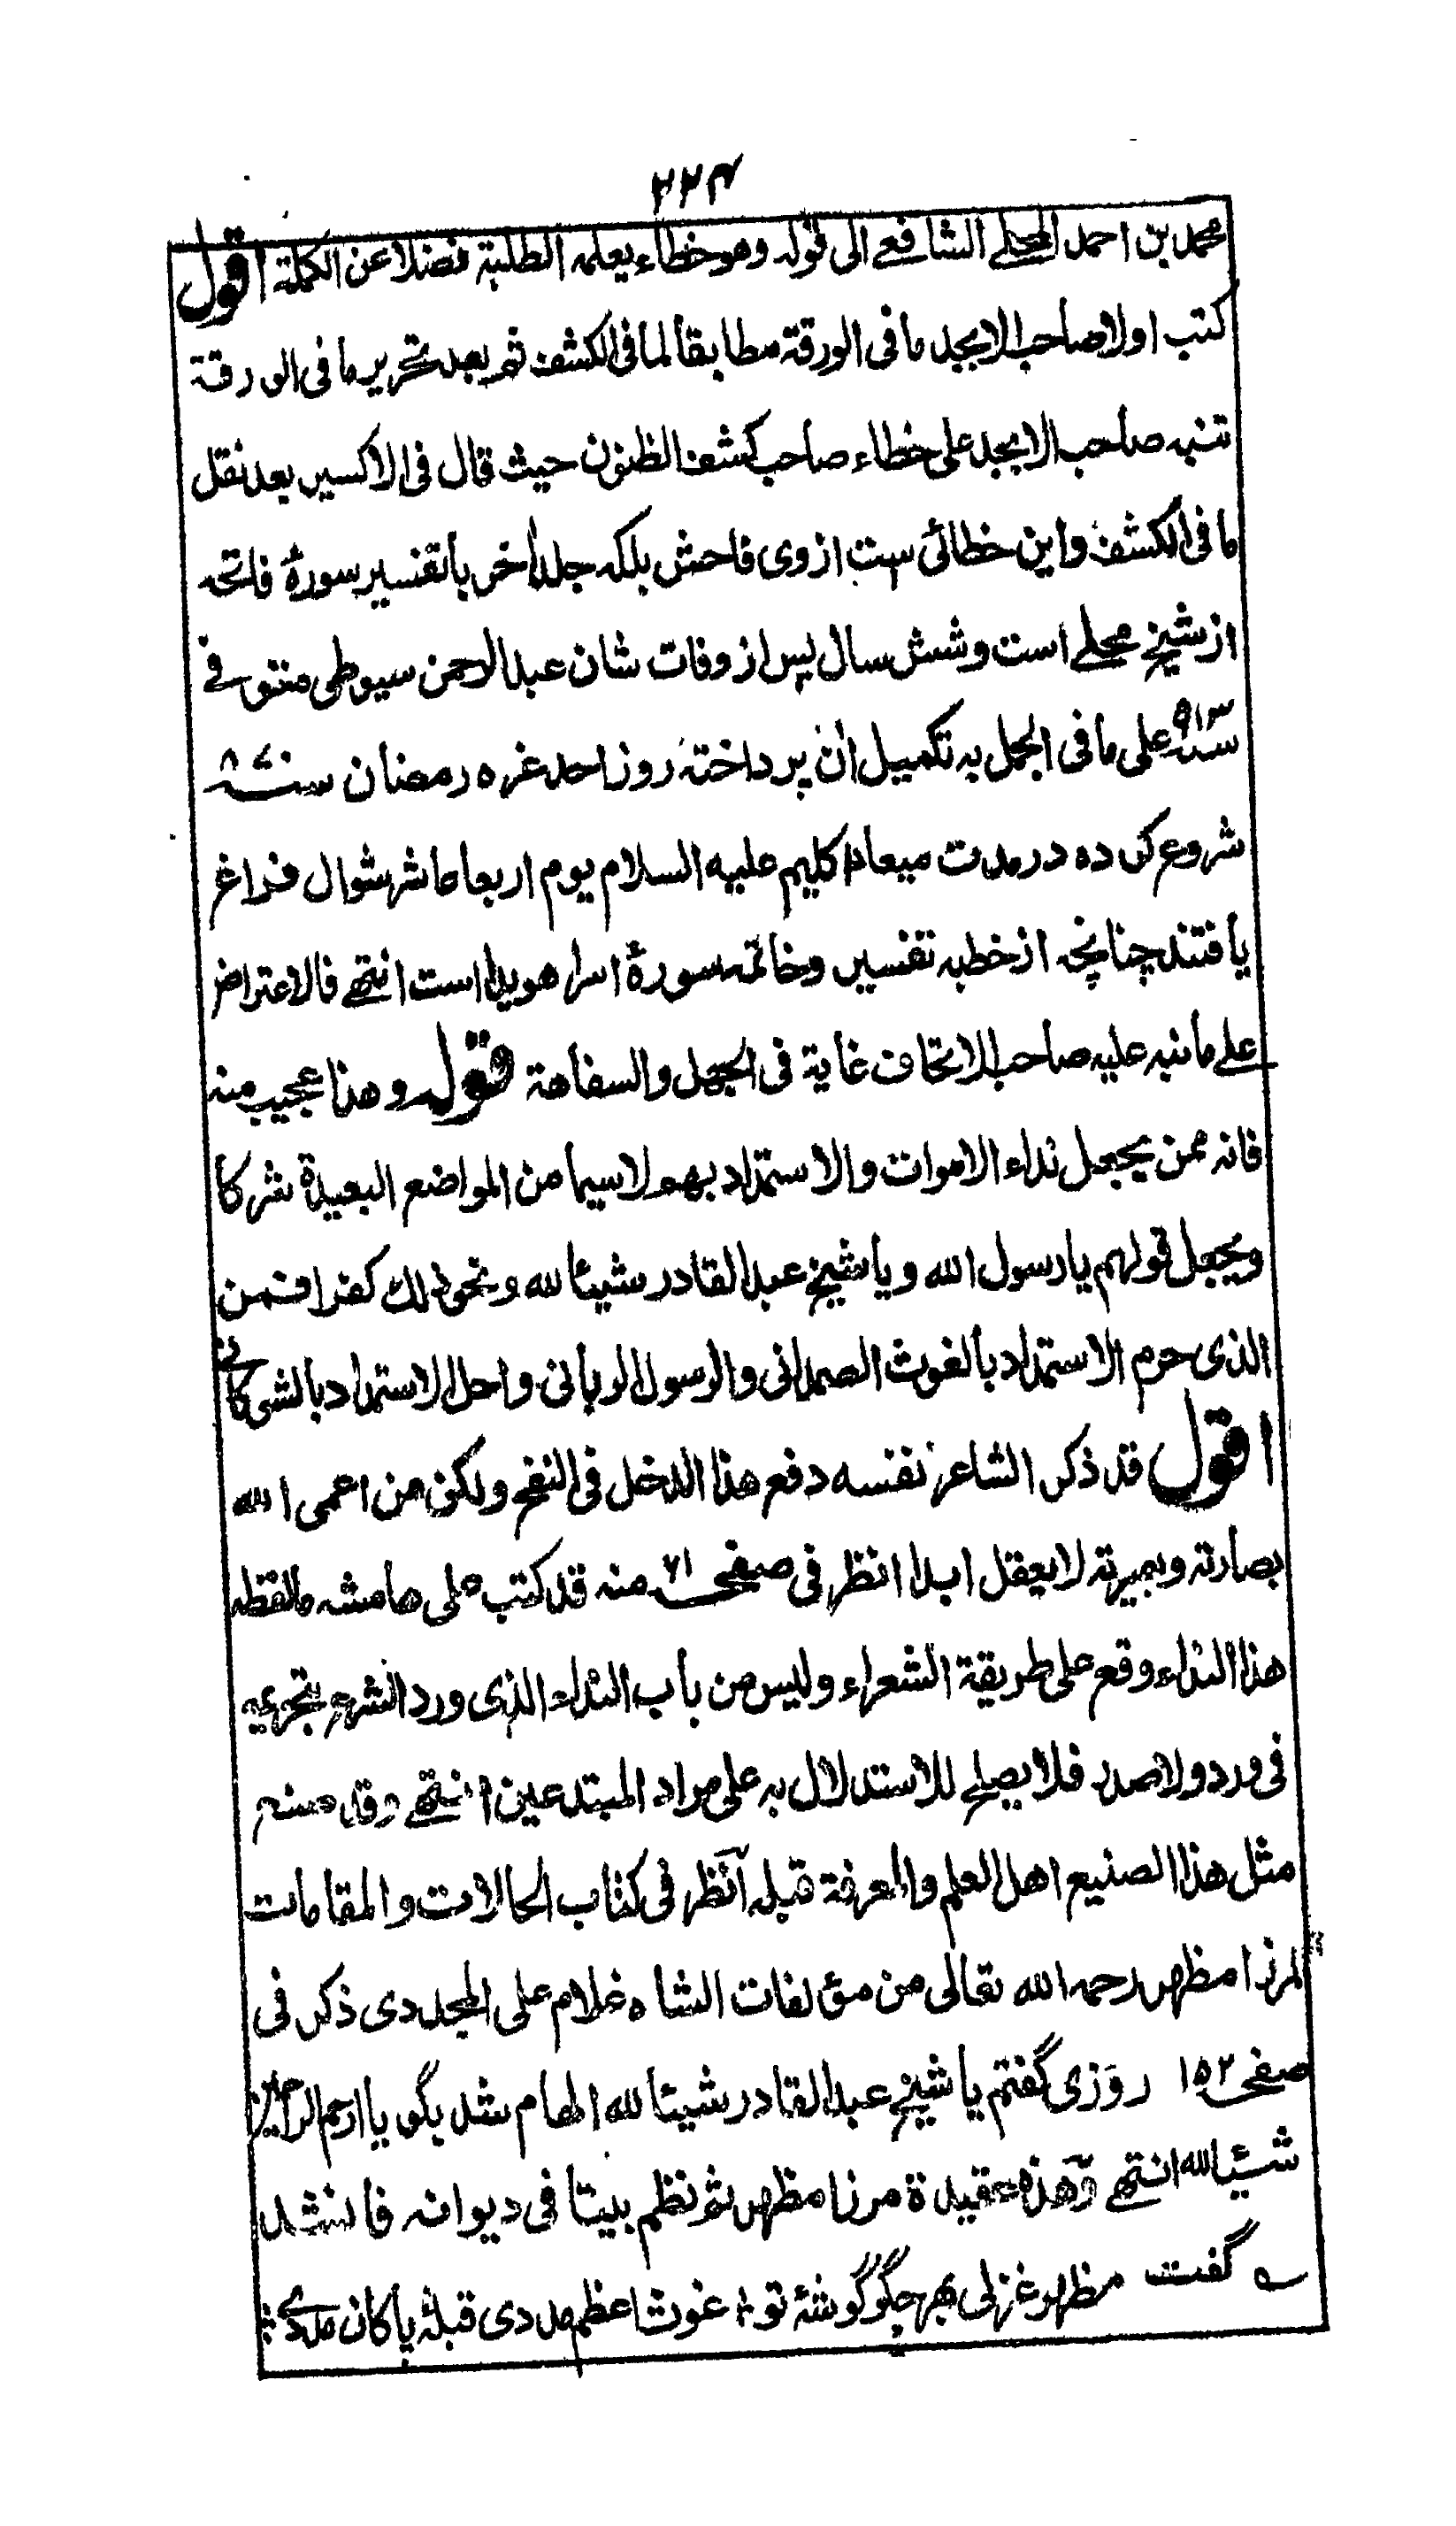 ۲۲۴
محمد بن احمد المحلے الشافعے الی قولہ وھو خطاء یعلمہ الطلبۃ فضلا عن الکملۃ اقول
کتب اولا صاحب الابجد ما فی الورقۃ مطابقا لما فی الکشف ثم بعد تحریر ما فی الورقۃ
تنبہ صاحب الابجد علی خطاء صاحب کشف الظنون حیث قال فی الاکسیر بعد نقل
ما فی الکشف واین خطائی ست ازوی فاحش بلکہ جلد اخر با تفسیر سورۂ فاتحہ
از شیخ محلے است وشش سال پس از وفات شان عبد الرحمن سیوطی متوفے
سنہ ۹۱۳ علی ما فی الجمل بہ تکمیل ان پرداختہ روز احد غرہ رمضان سنہ ۸۷
شروع کردہ در مدت میعاد کلیم علیہ السلام یوم اربعا عاشر شوال فراغ
یافتند چنانچہ از خطبہ تفسیر وخاتمہ سورۂ اسرا ھویدا است انتھے فالاعتراض
علے ما نبہ علیہ صاحب الاتحاف غایۃ فی الجھل والسفاھۃ قولہ وھذا عجیب منہ
فانہ ممن یجعل نداء الاموات والاستمداد بھم لاسیما من المواضع البعیدۃ شرکا
ویجعل قولہم یا رسول اللہ ویا شیخ عبد القادر شیئا للہ ونحو ذلک کفرا فمن
الذی حرم الاستمداد بالغوث الصمدانی والرسول الربانی واحل الاستمداد بالشوکانے
اقول قد ذکر الشاعر نفسہ دفع ھذا الدخل فی النفح ولکن من اعمی اللہ
بصارتہ وبصیرتہ لا یعقل ابدا انظر فی صفحہ ۷۱ منہ قد کتب علی ھامشہ ما لفظہ
ھذا النداء وقع علی طریقۃ الشعراء ولیس من باب النداء الذی ورد الشرع بتحریمہ
فی ورد ولا صدر فلا یصلح للاستدلال بہ علی مراد المبتدعین انتھے وقد صنع
مثل ھذا الصنیع اھل العلم والمعرفۃ قبلہ انظر فی کتاب الحالات والمقامات
لمرزا مظہر رحمہ اللہ تعالی من مؤلفات الشاہ غلام علی المجددی ذکر فی
صفحہ ۱۵۲ روزی گفتم یا شیخ عبد القادر شیئا للہ الھام شد بگو یا ارحم الراحمین
شیئا للہ انتھے وھذہ عقیدۃ مرزا مظہر ثم نظم بیتا فی دیوانہ فانشد
ــہ گفت مظہر غزلی بھر جگر گوشۂ تو ؛ غوث اعظم مددی قبلۂ پاکان مددے